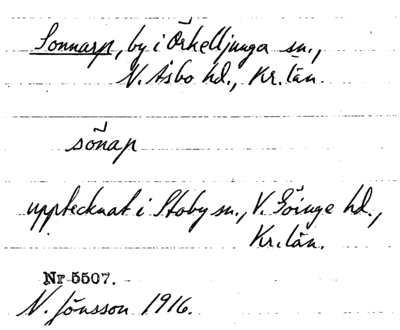 Sonnarp, by i Örkelljunga sn.,
N. Åsbo hd., Kr. län.
sōnap
upptecknat i Stoby sn., V. Göinge hd.,
Kr. län.
Nr 5507.
N. Jönsson 1916.